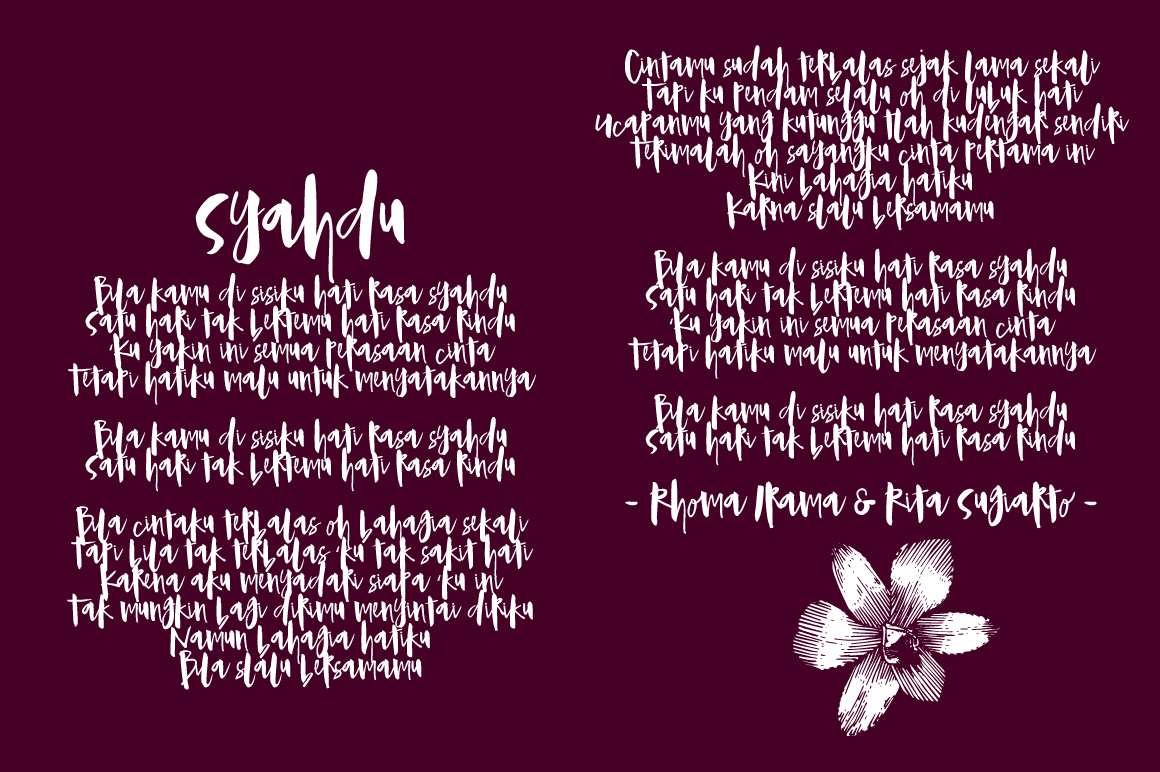 syahdu
Bila kamu di sisiku hati rasa syahdu
Satu hari tak bertemu hati rasa rindu
'Ku yakin ini semua perasaan cinta
Tetapi hatiku malu untuk menyatakannya
Bila kamu di sisiku hati rasa syahdu
Satu hari tak bertemu hati rasa rindu
Bila cintaku terbalas oh bahagia sekali
Tapi bila tak terbalas 'ku tak sakit hati
Karena aku menyadari siapa 'ku ini
Tak mungkin bagi dirimu menyintai diriku
Namun bahagia hatiku
Bila slalu bersamamu
Cintamu sudah terbalas sejak lama sekali
Tapi ku pendam selalu oh di lubuk hati
Ucapanmu yang kutunggu tlah kudengar sendiri
Terimalah oh sayangku cinta pertama ini
Kini bahagia hatiku
Karna slalu bersamamu
Bila kamu di sisiku hati rasa syahdu
Satu hari tak bertemu hati rasa rindu
'Ku yakin ini semua perasaan cinta
Tetapi hatiku malu untuk menyatakannya
Bila kamu di sisiku hati rasa syahdu
Satu hari tak bertemu hati rasa rindu
- Rhoma Irama & Rita Sugiarto -